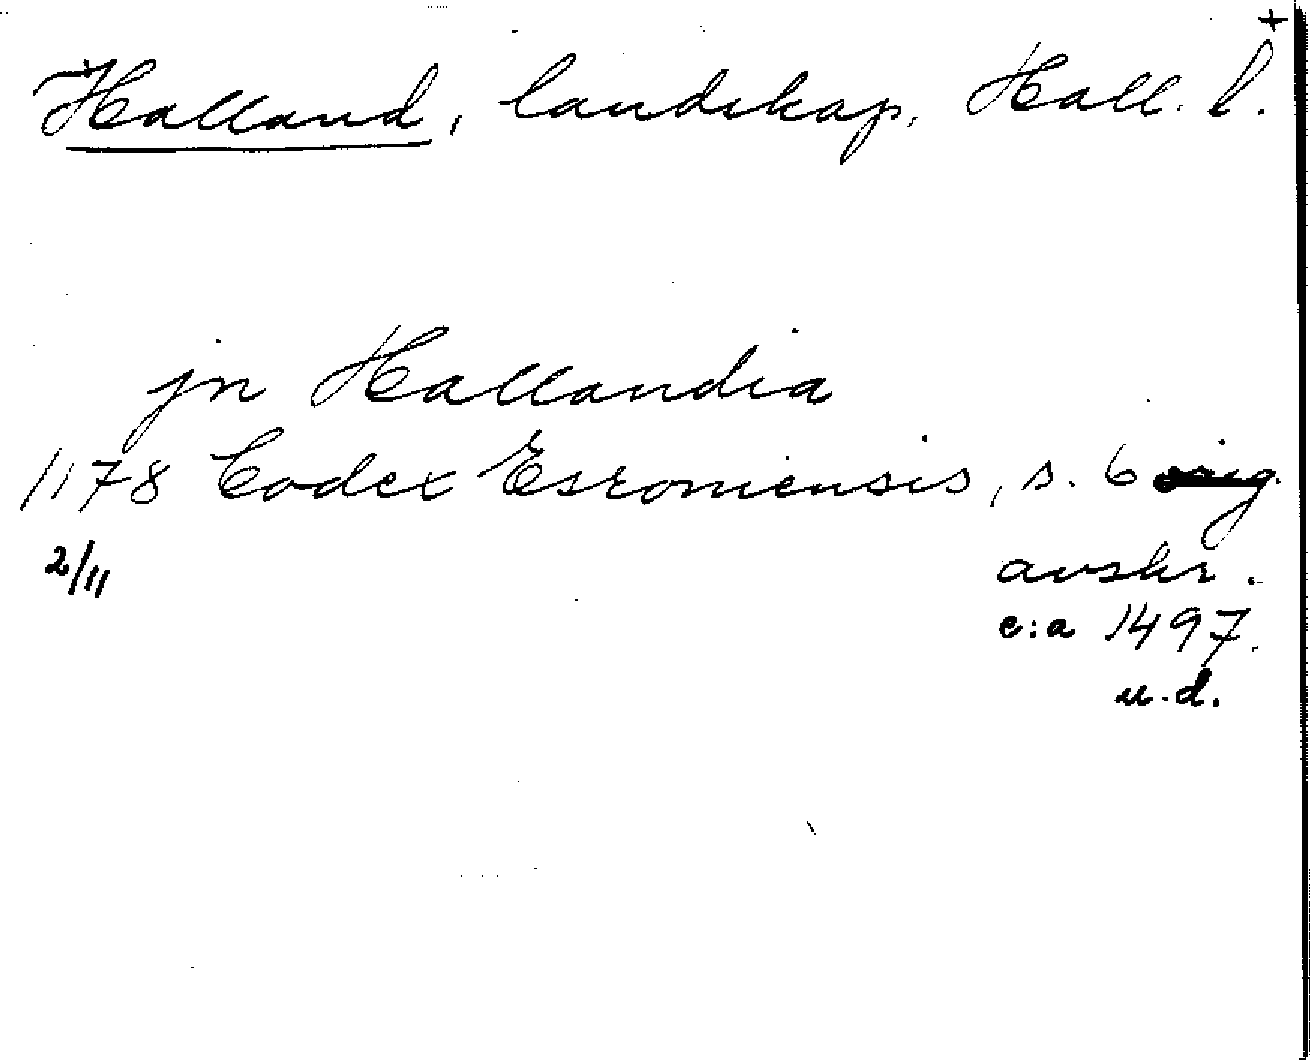 +
Halland, landskap, Hall. l.
jn Hallandia
1178 Codex Esromensis, s. 6 orig.
2/11 avskr.
c:a 1497.
u.d.